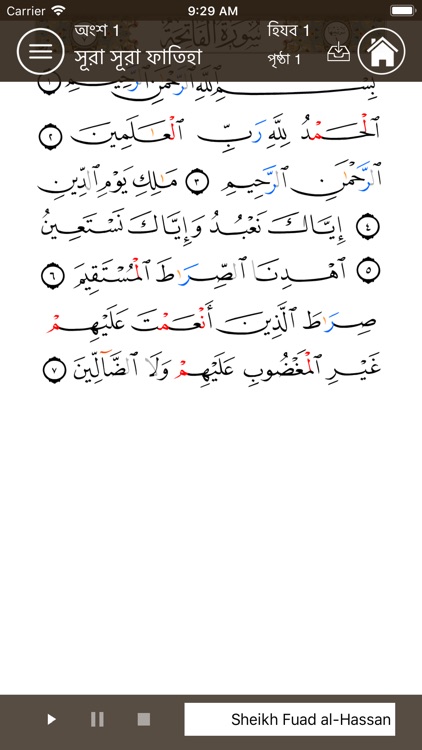 Carrier 9:29 AM
অংশ 1
হিযব 1
সূরা সূরা ফাতিহা
পৃষ্ঠা 1
سُورَةُ الْفَاتِحَةِ
بِسْمِ ٱللَّهِ ٱلرَّحْمَٰنِ ٱلرَّحِيمِ ١
ٱلْحَمْدُ لِلَّهِ رَبِّ ٱلْعَٰلَمِينَ ٢
ٱلرَّحْمَٰنِ ٱلرَّحِيمِ ٣ مَٰلِكِ يَوْمِ ٱلدِّينِ
٤ إِيَّاكَ نَعْبُدُ وَإِيَّاكَ نَسْتَعِينُ
٥ ٱهْدِنَا ٱلصِّرَٰطَ ٱلْمُسْتَقِيمَ ٦
صِرَٰطَ ٱلَّذِينَ أَنْعَمْتَ عَلَيْهِمْ
غَيْرِ ٱلْمَغْضُوبِ عَلَيْهِمْ وَلَا ٱلضَّآلِّينَ ٧
Sheikh Fuad al-Hassan